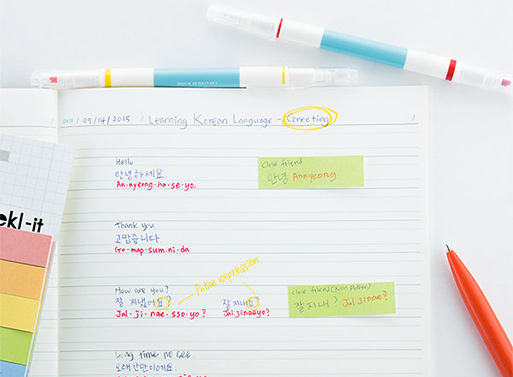 DATE / 09/14/2015 / Learning Korean Language - Greeting /
Hello
안녕하세요
An-nyeong-ha-se-yo.
Close friend
안녕 Annyeong
ekl-it
Thank you
고맙습니다
Go-map-sum.ni-da
Polite expression
How are you?
잘 지냈어요? 잘 지내요?
Jal-ji-nae-sso-yo? Jal jinaeyo?
close friend (Non Polite)
잘 지내? Jal jinae?
Long time no see
오래간만이에요.